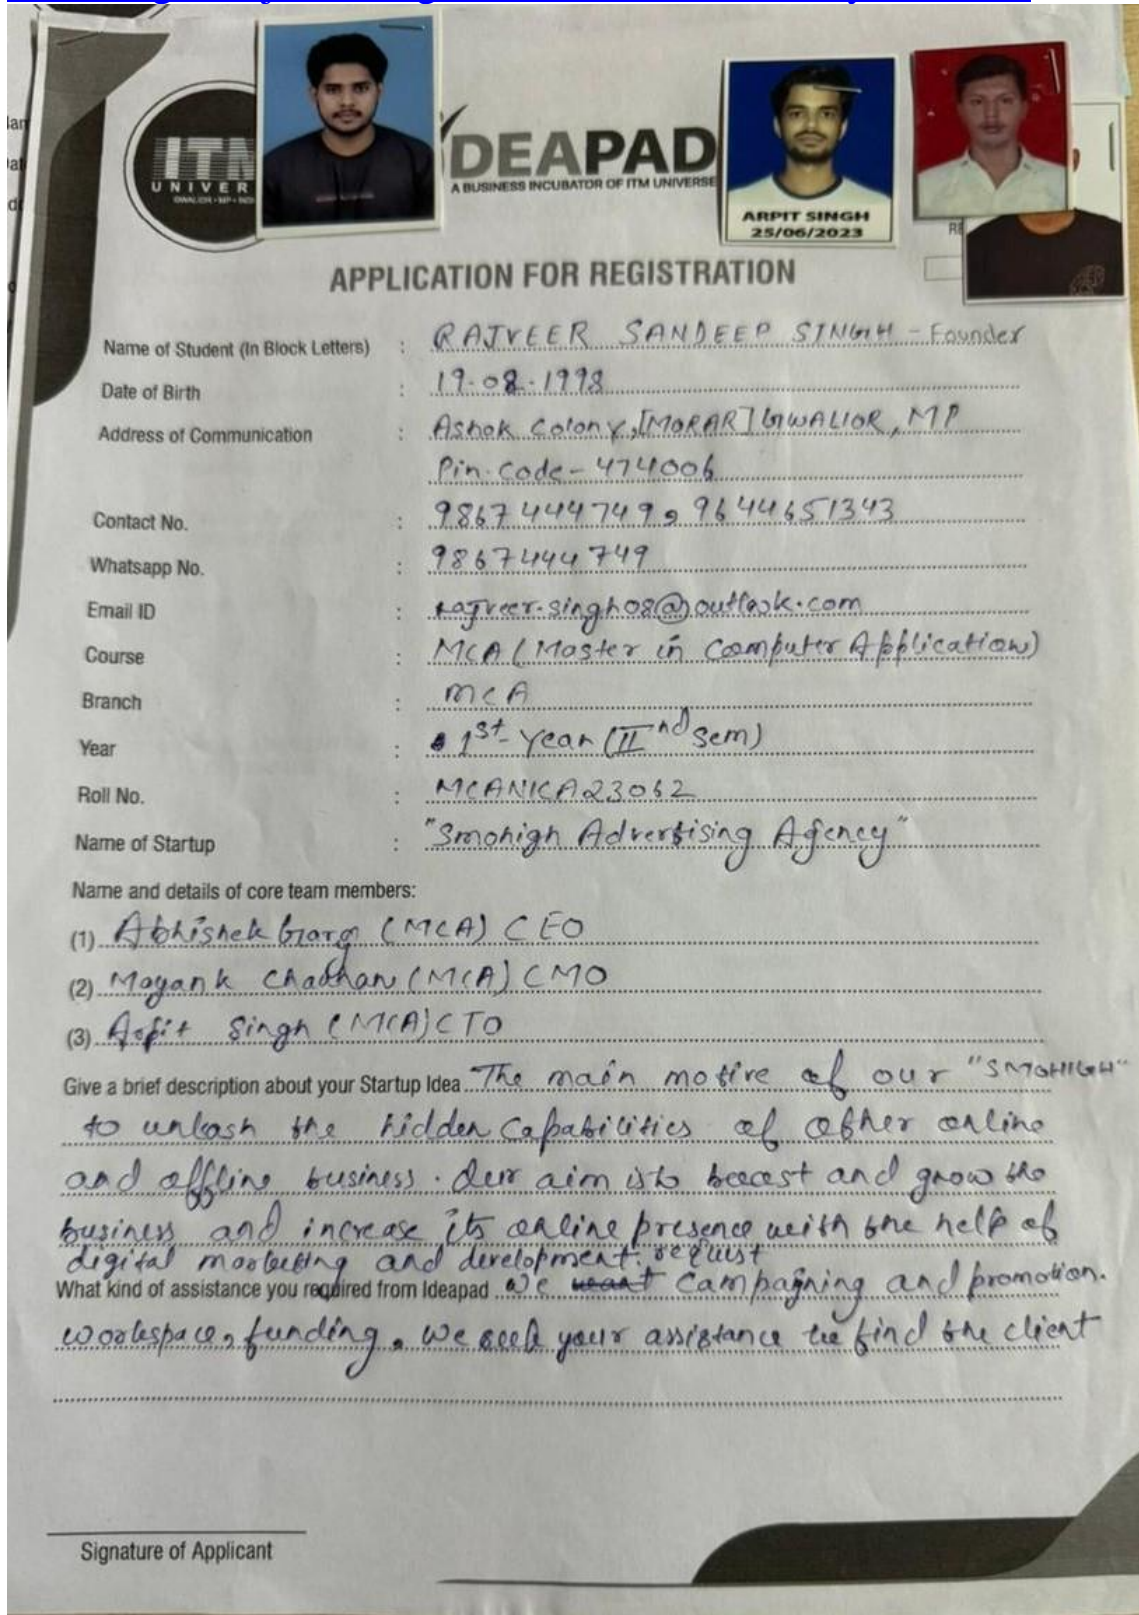 ITM
UNIVER
GWALIOR • MP •
IDEAPAD
A BUSINESS INCUBATOR OF ITM UNIVERSE
ARPIT SINGH
25/06/2023
APPLICATION FOR REGISTRATION
Name of Student (In Block Letters) : RAJVEER SANDEEP SINGH - Founder
Date of Birth : 19-08-1998
Address of Communication : Ashok Colony,[MORAR] GWALIOR, MP
Pin-Code - 474006
Contact No. : 9867444749, 9644651343
Whatsapp No. : 9867444749
Email ID : rajveer.singh08@outlook.com
Course : MCA (Master in Coomputer Application)
Branch : MCA
Year : 1st Year (IInd Sem)
Roll No. : MCAN1CA23062
Name of Startup : "Smohigh Advertising Agency"
Name and details of core team members:
(1) Abhishek Garg (MCA) CEO
(2) Mayank Chauhan (MCA) CMO
(3) Arpit Singh (MCA) CTO
Give a brief description about your Startup Idea The main motive of our "SMOHIGH"
to unleash the hidden capabilities of other online
and offline business. Our aim is to boost and grow the
business and increase its online presence with the help of
digital marketing and development.
What kind of assistance you required from Ideapad We request campaigning and promotion.
workspace, funding, we seek your assistance to find the client
Signature of Applicant